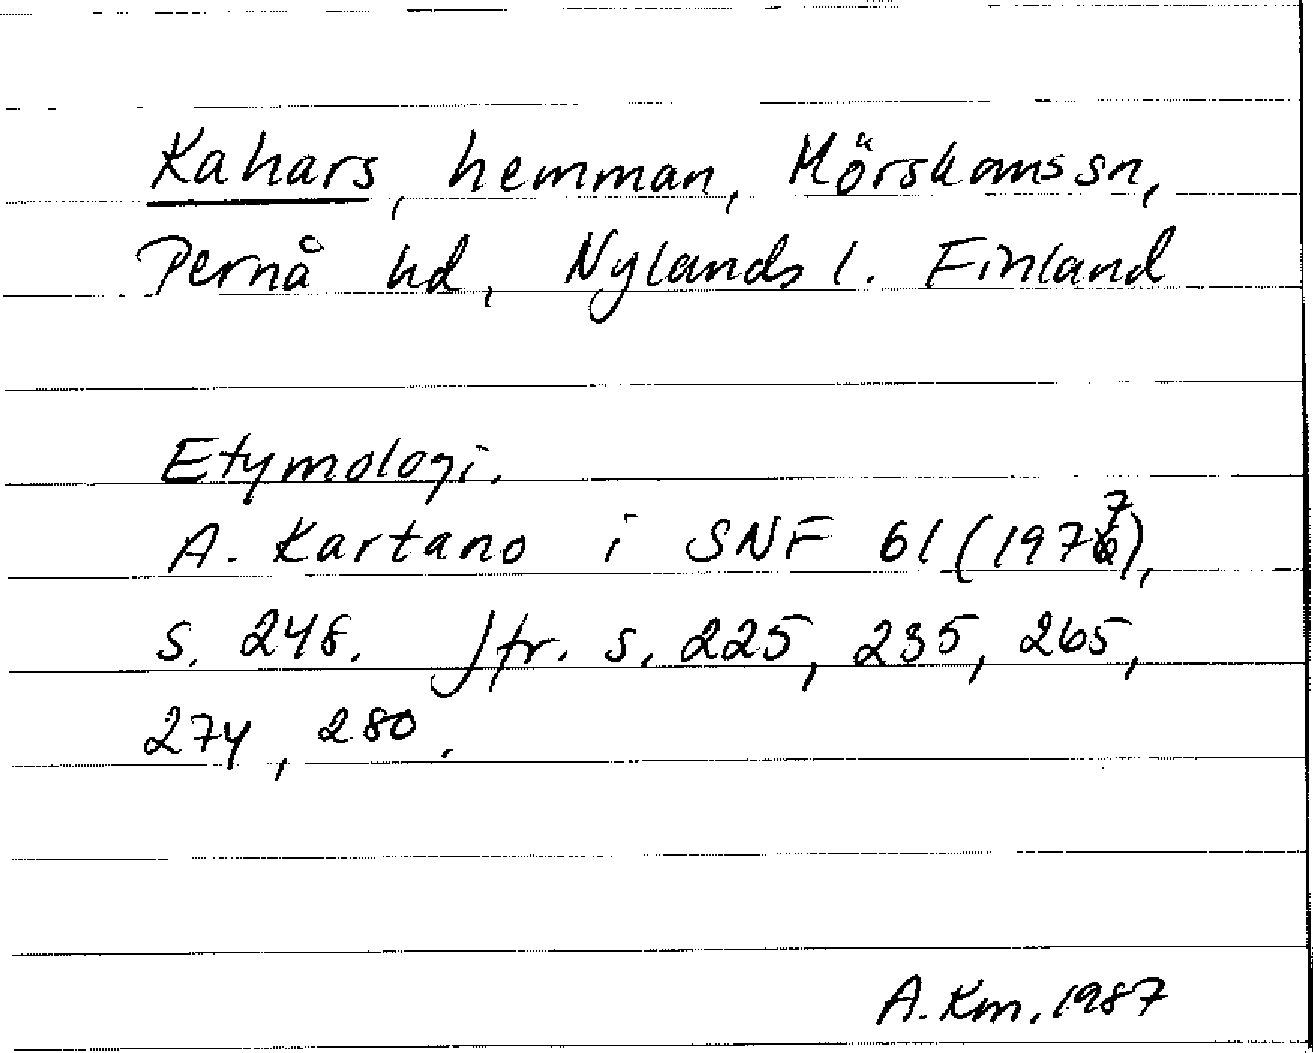 Kahars, hemman, Mörskoms sn,
Pernå hd, Nylands l. Finland
Etymologi.
A. Kartano i SNF 61 (1977),
s. 248. Jfr. s. 225, 235, 265,
274, 280.
A. Km. 1987